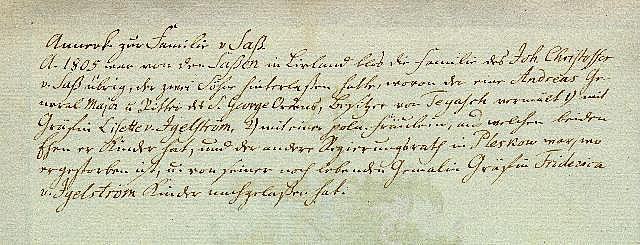 Annerk: zur Familie v Saß
A. 1805 war von den Saßen in Livland blos die Familie des Joh Christoffer
v. Saß übrig, der zwei Söhne hinterlaßen hatte, wovon der eine Andreas Ge-
neral Major u. Ritter des St. George Ordens, Besitzer von Tegasch vermält 1) mit
Gräfin Lisette v. Igelström, 2) mit einer poln. Fräulein, aus welchen beiden
Ehen er Kinder hat, und der andere Regierungsrath in Pleskow war, wo
er gestorben ist, u. von seiner noch lebenden Gemalin Gräfin Friderica
v. Igelström Kinder nachgelaßen hat.